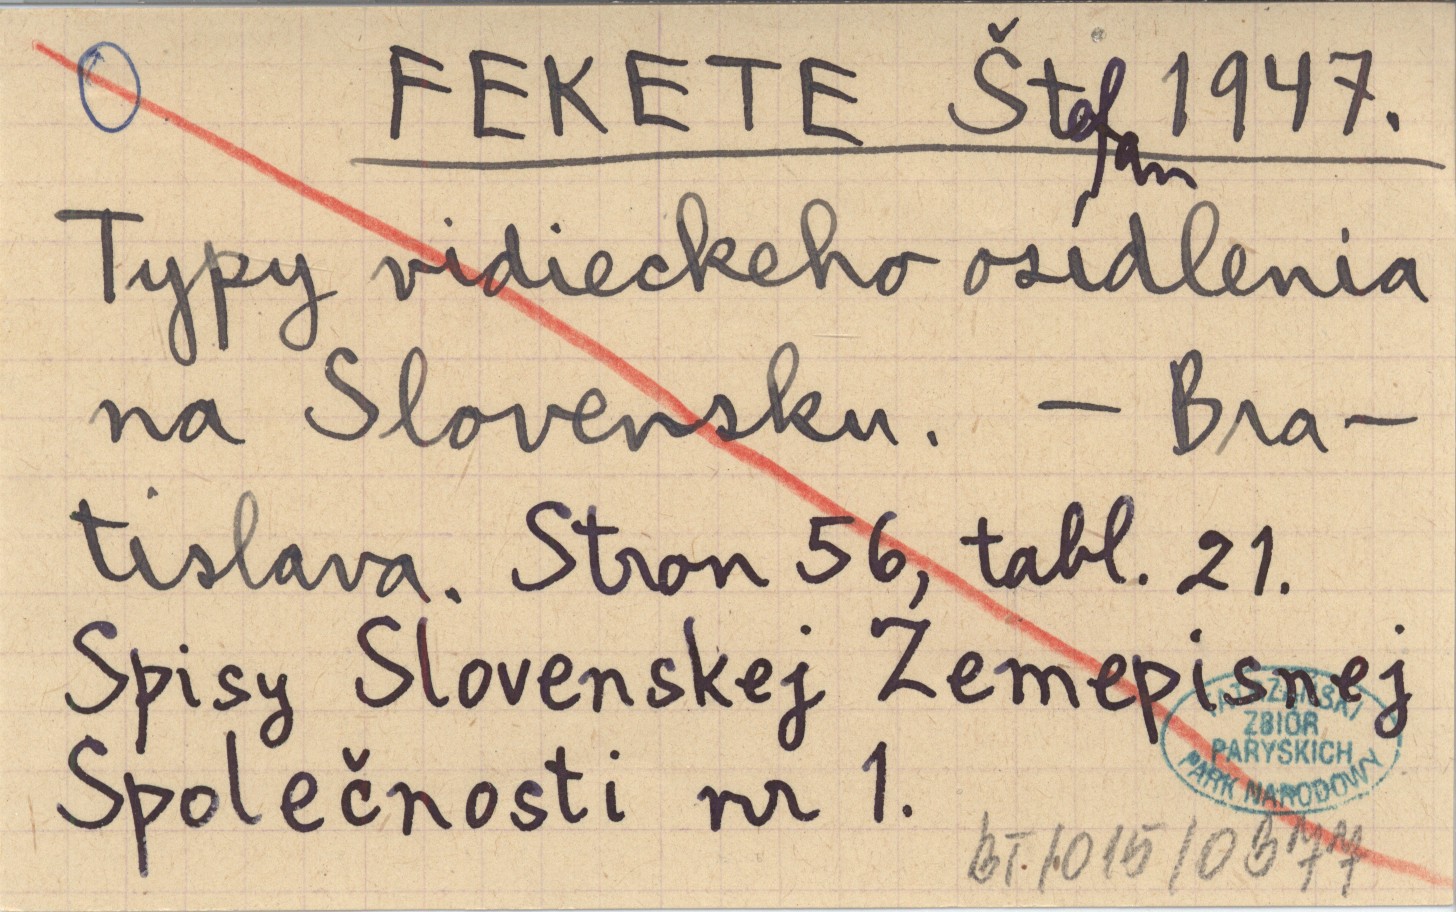 FEKETE Štefan 1947.
Typy vidieckeho osídlenia
na Slovensku. — Bra-
tislava. Stron 56, tabl. 21.
Spisy Slovenskej Zemepisnej
Společnosti nr 1.
TATRZAŃSKI
ZBIÓR
PARYSKICH
PARK NARODOWY